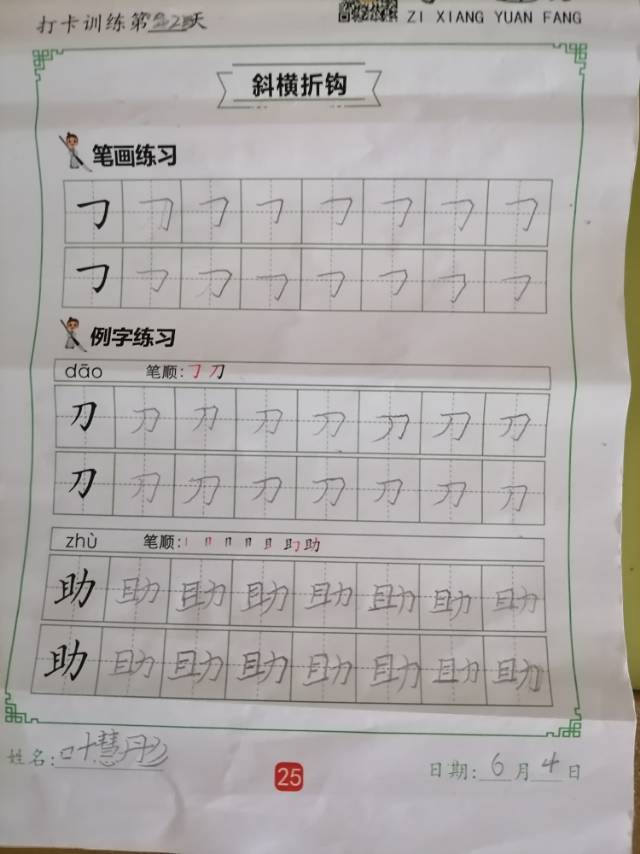 打卡训练第22天
ZI XIANG YUAN FANG
斜横折钩
笔画练习
㇆ ㇆ ㇆ ㇆ ㇆ ㇆ ㇆ ㇆
㇆ ㇆ ㇆ ㇆ ㇆ ㇆ ㇆ ㇆
例字练习
dāo 笔顺: ㇆ 刀
刀 刀 刀 刀 刀 刀 刀 刀
刀 刀 刀 刀 刀 刀 刀 刀
zhù 笔顺:
助 助 助 助 助 助 助 助
助 助 助 助 助 助 助 助
姓名: 叶慧彤
25
日期: 6 月 4 日